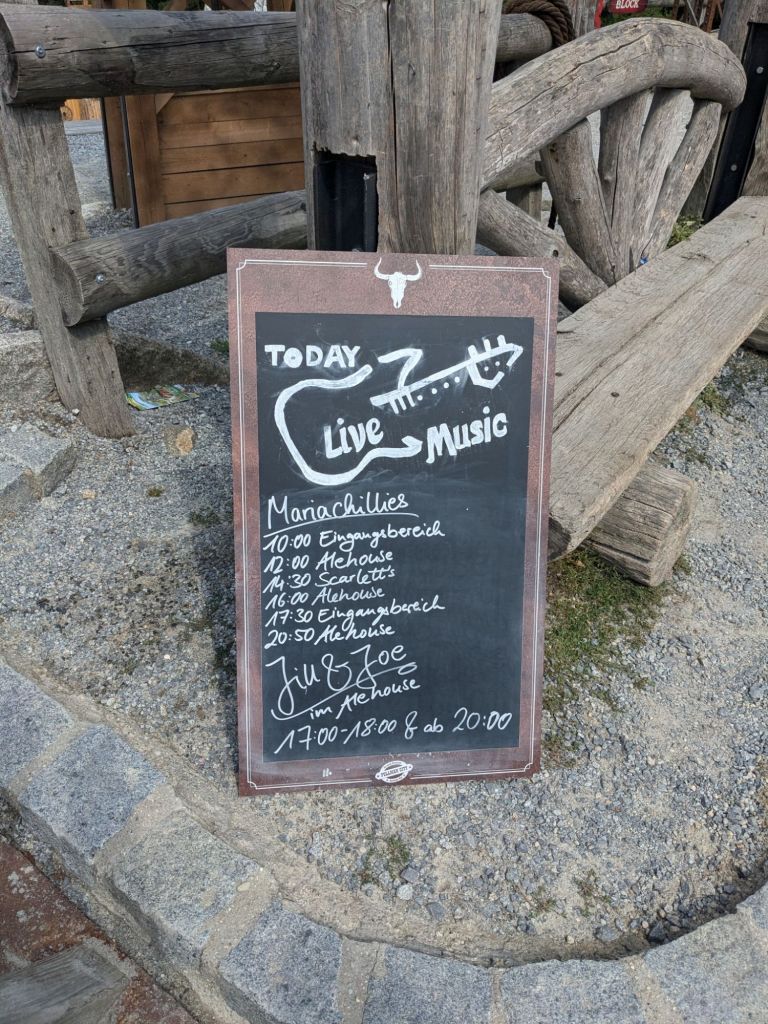 BLOCK
TODAY
Live Music
Mariachillies
10:00 Eingangsbereich
12:00 Alehouse
14:30 Scarlett's
16:00 Alehouse
17:30 Eingangsbereich
20:50 Alehouse
Jill & Joe
im Alehouse
17:00-18:00 & ab 20:00
PULLMAN CITY